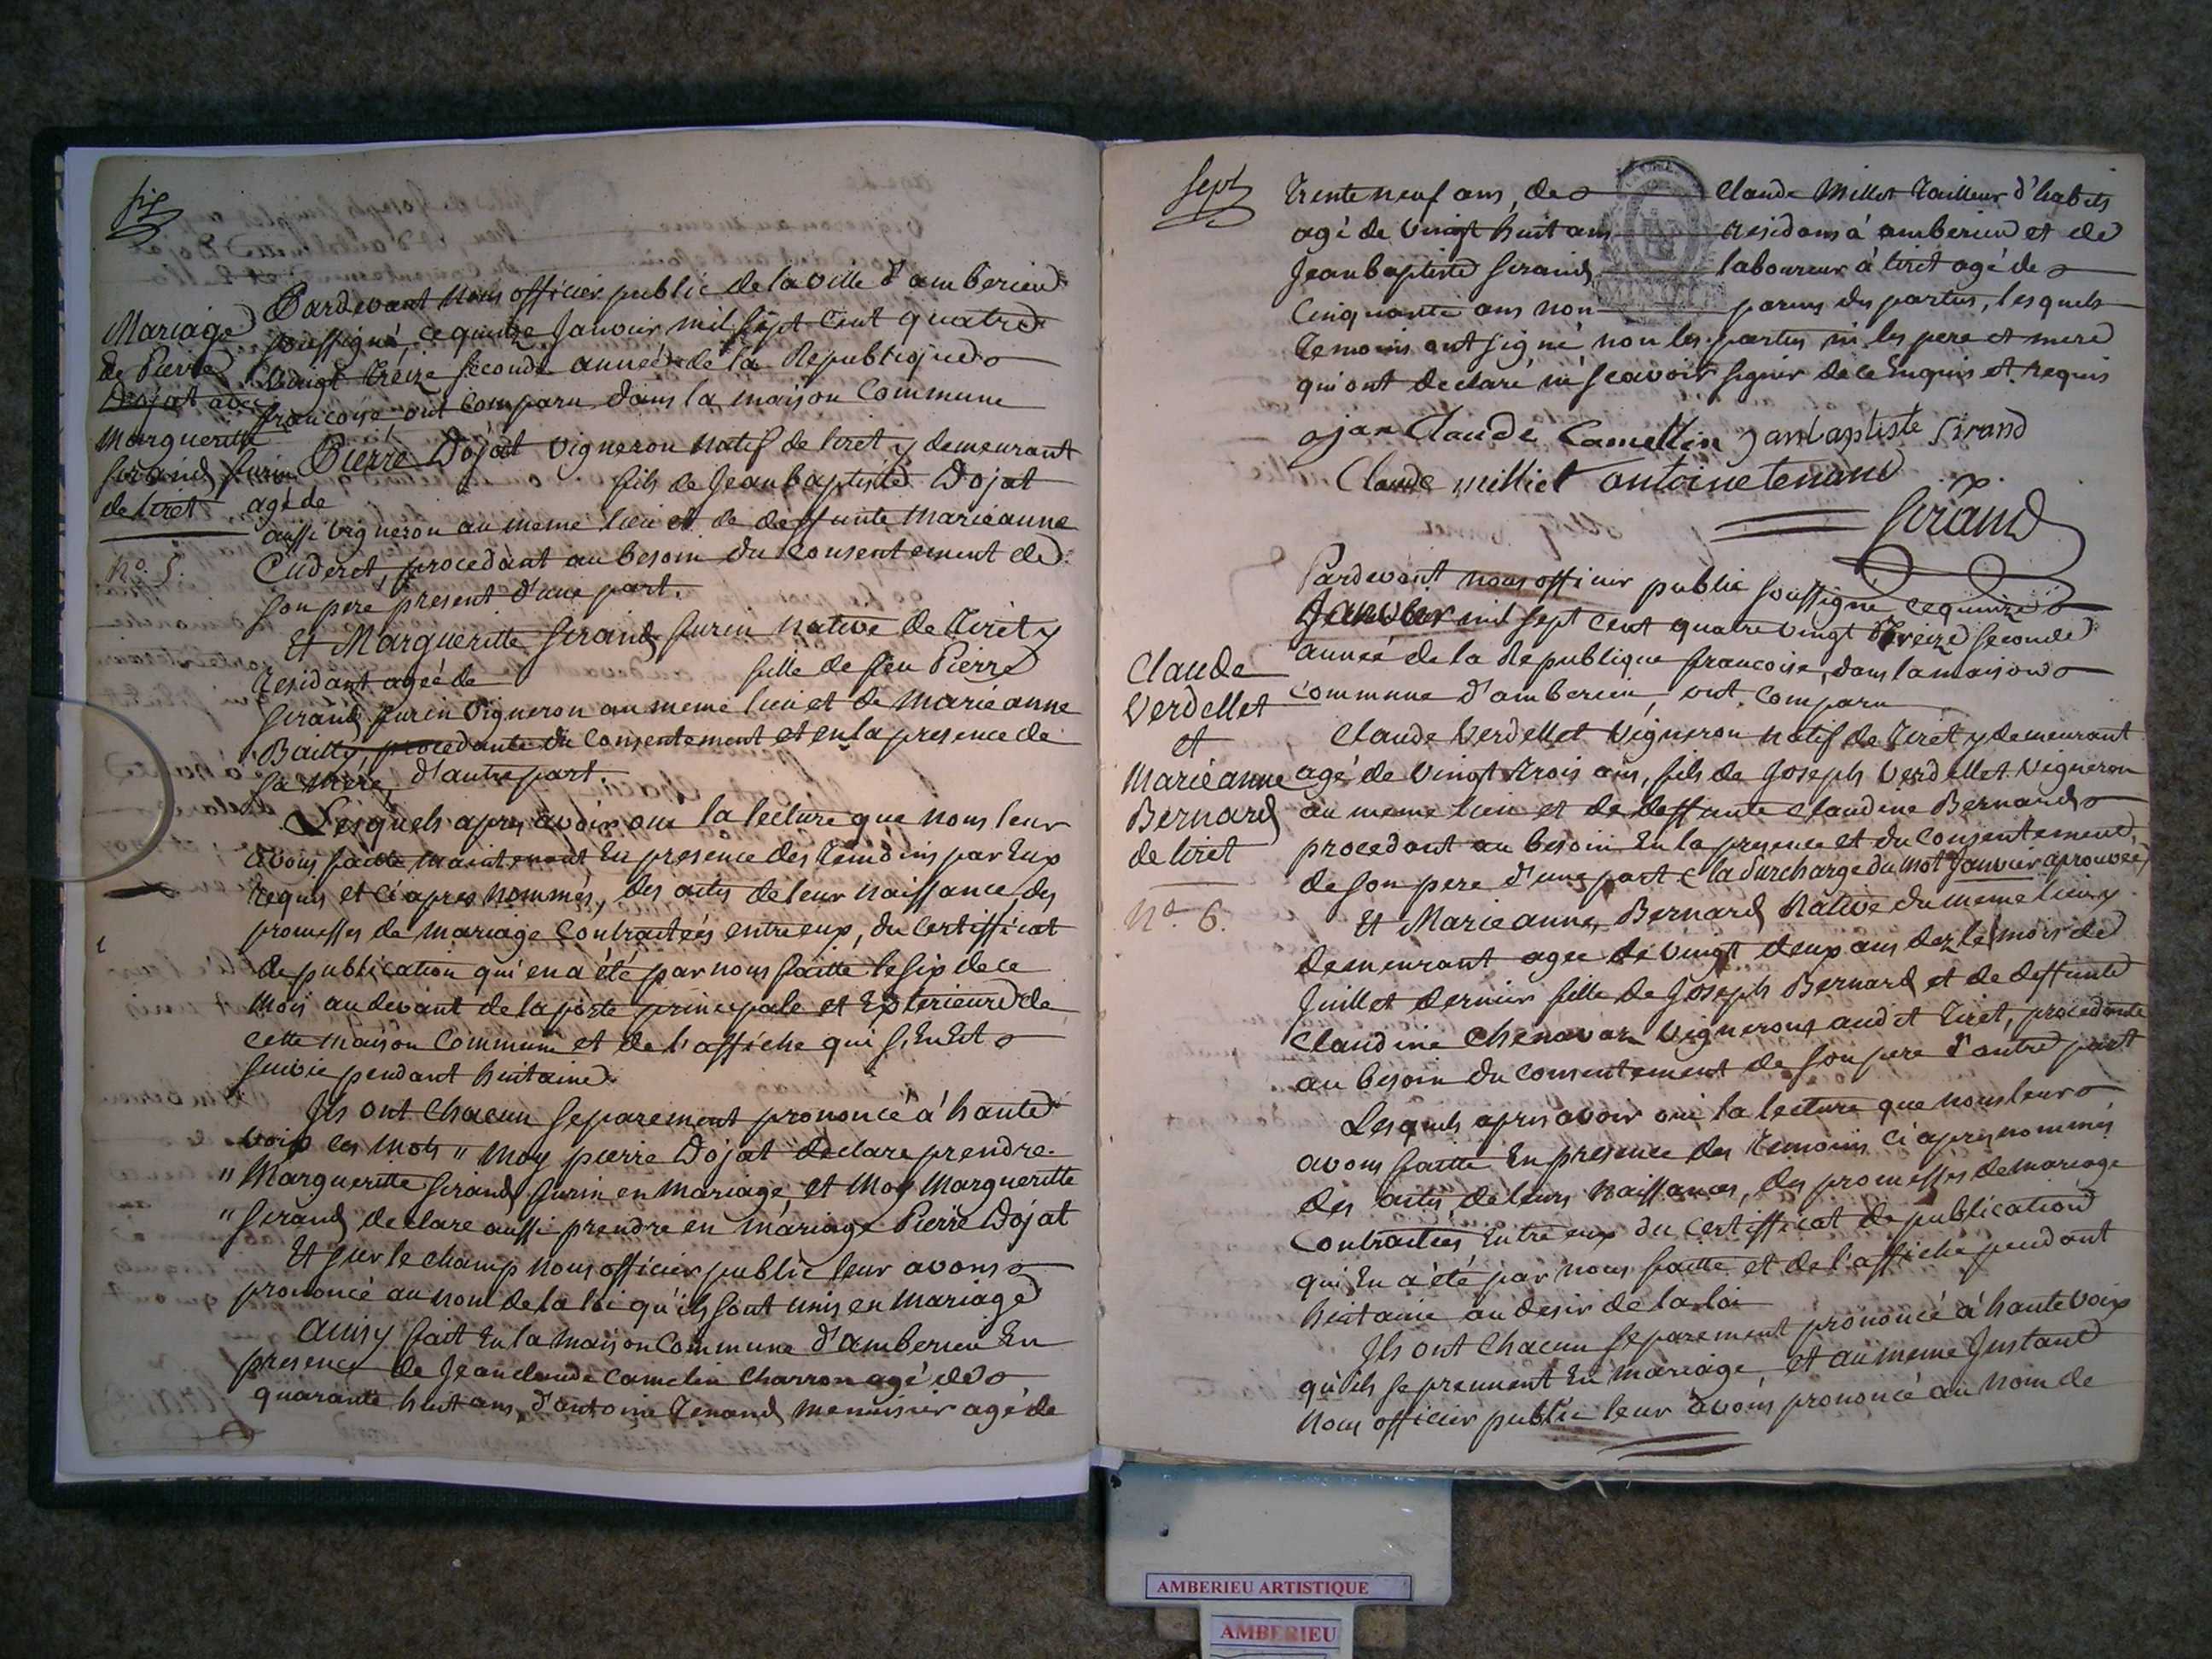 six
Mariage
de Pierre
Dojat avec
Margueritte
Sirand furin
de tiret
N.o 5.
Pardevant Nous officier public de la ville d'amberieu
soussigné, ce quinze Janvier mil sept cent quatre
vingt treize seconde année de la Republique
francoise, ont comparu dans la maison Commune
Pierre Dojat vigneron natif de tiret y demeurant
agé de fils de Jean baptiste Dojat
aussi vigneron au meme lieu et de deffunte marieanne
Cuderet, procedant au besoin du Consentement de
son pere present d'une part.
Et Margueritte Sirand furin native de Tiret y
residant ageé de fille de feu Pierre
Sirand furin vigneron au meme lieu et de marieanne
Bailly, procedante du Consentement et en la presence de
sa mere, d'autre part.
Lesquels apres avoir oui la lecture que nous leur
avons faitte maintenant En presence des Temoins par Eux
requis et ci apres nommés, des actes de leur naissance, des
promesses de mariage Contractées entre eux, du Certifficat
de publication qui en a été par nous faitte le six de ce
mois au devant de la porte principale et Exterieure de
cette maison Commune et de l'affiche qui s'en Est
suivie pendant huitaine.
Ils ont Chacun separement prononcé à haute
voix ces mots " moy pierre Dojat declare prendre
" Margueritte Sirand furin en mariage, et moy Margueritte
" Sirand declare aussi prendre en mariage Pierre Dojat
Et sur le champ nous officier public leur avons
prononcé au nom de la loi qu'ils sont unis en mariage
Ainsy fait En la maison Commune d'amberieu En
presence de Jean claude camelin Charron agé de
quarante huit ans, d'antoine Tenand menuisier agé de
sept
Trente neuf ans, de Claude Millet Tailleur d'habits
agé de vingt huit ans residans à amberieu et de
Jean baptiste Sirand laboureur à tiret agé de
Cinquante ans non parens des parties, lesquels
temoins ont signé non les parties ni les pere et mere
qui ont declaré ne scavoir signer de ce Enquis et requis
jan Claude Camellin janbaptiste Sirand
Claude milliet antoine tenand
Sirand
Claude
Verdellet
et
Marieanne
Bernard
de tiret
N.o 6.
Pardevant nous officier public soussigné ce quinze
Janvier mil sept cent quatre vingt treize seconde
année de la Republique francoise, dans la maison
commune d'amberieu, ont comparu
Claude Verdellet vigneron natif de Tiret y demeurant
agé de vingt trois ans, fils de Joseph Verdellet vigneron
au meme lieu et de deffunte Claudine Bernard
procedant au besoin En la presence et du Consentement
de son pere d'une part (la surcharge du mot Janvier aprouvée)
Et Marieanne Bernard Native du meme lieu y
demeurant agee de vingt deux ans dez le mois de
Juillet dernier fille de Joseph Bernard et de deffunte
Claudine Chenavar vignerons audit Tiret, procedante
au besoin du consentement de son pere d'autre part
Lesquels apres avoir oui la lecture que nous leur
avons faitte En presence des Temoins ci apres nommés
des actes de leurs naissances, des promesses de mariage
Contractées Entre eux du Certifficat de publication
qui En a été par nous faitte et de l'affiche pendant
huitaine au desir de la loi
Ils ont chacun separement prononcé à haute voix
qu'ils se prennent En mariage, et au meme Instant
nous officier public leur avons prononcé au nom de
AMBERIEU ARTISTIQUE
AMBERIEU